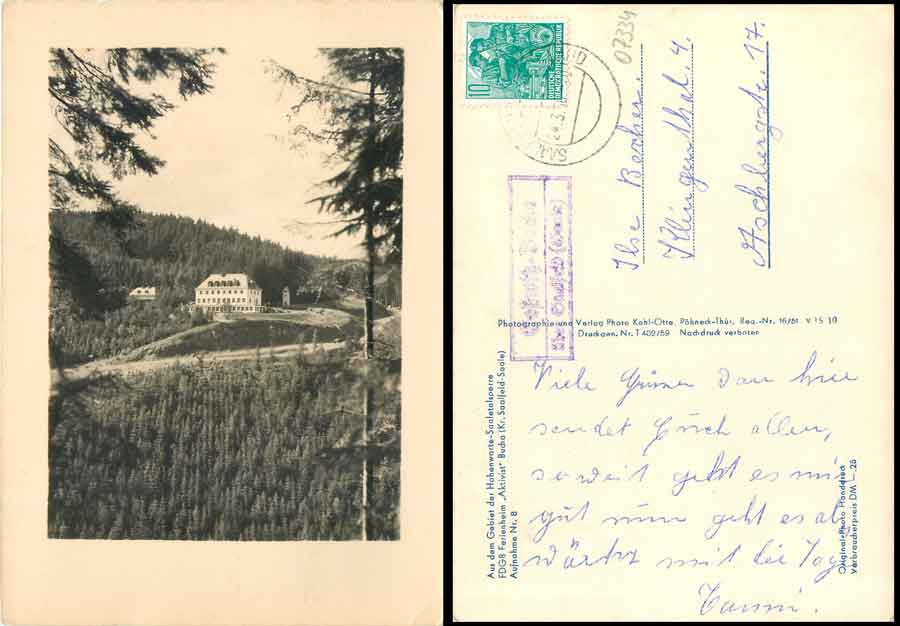 10
DEUTSCHE
DEMOKRATISCHE REPUBLIK
5
07334
Ilse Becher
Klingenthal 4.
Aschbergstr. 17.
Photographie und Verlag Photo Kahl-Otte, Pößneck-Thür., Reg.-Nr. 16/61 V 15 10
Druckgen. Nr. T 402/59 Nachdruck verboten
Aus dem Gebiet der Hohenwarte-Saaletalsperre
FDGB Ferienheim „Aktivist" Bucha (Kr. Saalfeld-Saale)
Aufnahme Nr. 8
Viele Grüsse von hier
sendet Euch allen,
soweit geht es mir
gut nun geht es ab
wärtz mit die Tag
Original-Photo Handabzug
Verbraucherpreis DM –.25